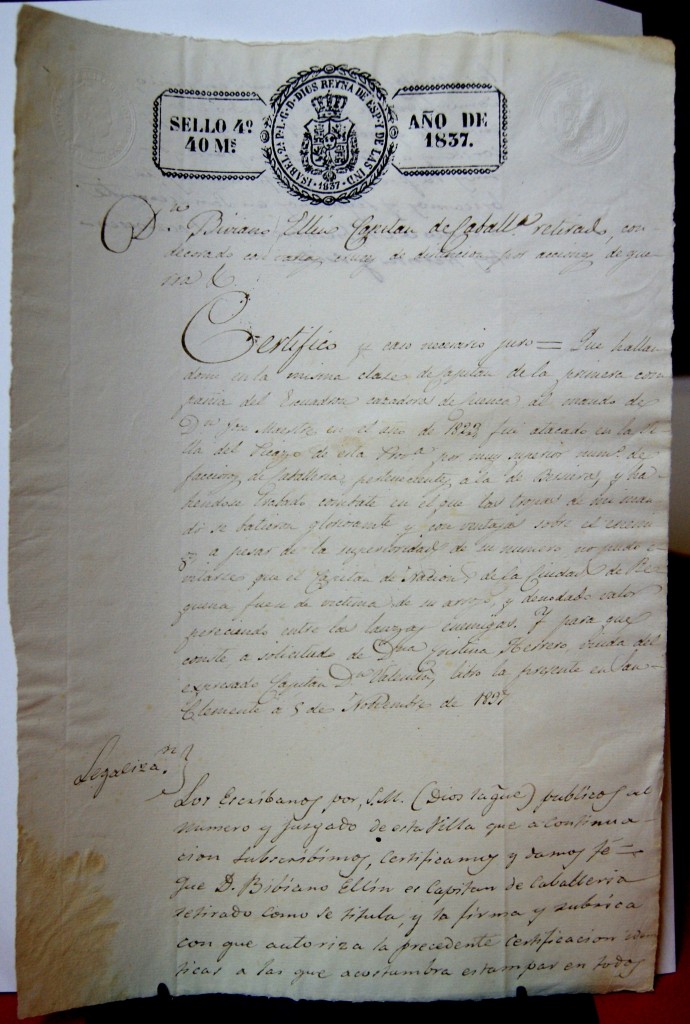 SELLO 4º
40 Ms.
ISABEL 2ª P. L. G. D. DIOS REYNA DE ESP. Y DE LAS IND.
1837
AÑO DE
1837.
Dn. Biviano Ellin Capitan de Caballa. retirado, con
decorado con varias cruces de distincion por acciones de gue-
rra &.
Certifico y caso necesario juro = Que hallan
dome en la misma clase de Capitan de la primera com
pañia del Escuadron cazadores de Cuenca al mando de
Dn. José en el año de 1822 fui atacado en la Vi
lla del Picazo de esta Prova. por muy superior numo. de
facciosos de Caballeria, pertenecientes a la de Besieres, y ha
biendose trabado combate en el que las tropas de mi man
do se batieron gloriosamente y con ventajas sobre el enemi
go a pesar de la superioridad de su numero no pudo e
vitarse que el Capitan de Nacions. de la Ciudad de Re
quena fuese victima de su arrojo, y denodado valor
pereciendo entre las lanzas enemigas. Y para que
conste a solicitud de Dña. Herrero, viuda del
expresado Capitan Dn. Valentin, libro la presente en San
Clemente a 5 de Noviembre de 1837
Legalizan.
Los Escribanos por S.M. (Dios lague) publicos del
numero y Juzgado de esta Villa que a continua-
cion subscribimos, certificamos y damos fé =
que D. Bibiano Ellin es Capitan de Caballeria
retirado como se titula, y la firma y rubrica
con que autoriza la precedente certificacion iden
ticas a las que acostumbra estampar en todos